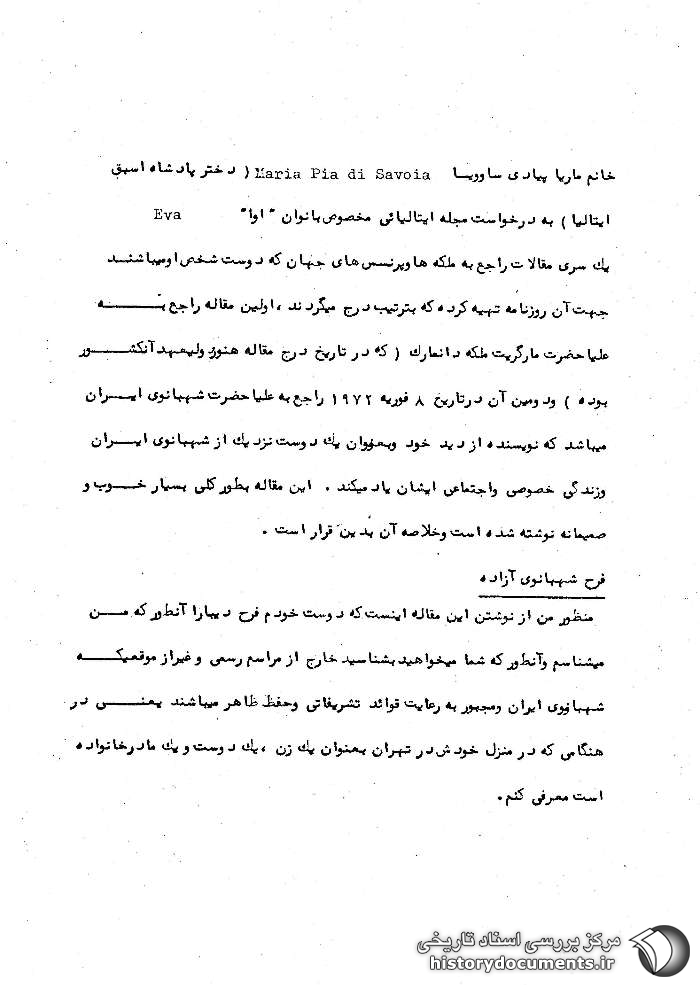 خانم ماریا پیادی ساوویا Maria Pia di Savoia ( دختر پادشاه اسبق
ایتالیا ) به درخواست مجله ایتالیائی مخصوص بانوان " اوا" Eva
یك سری مقالات راجع به ملکه ها وپرنسس های جهان که دوست شخص اومیباشند
جهت آن روزنامه تهیه کرده که بترتیب درج میگردند ، اولین مقاله راجع به
علیاحضرت مارگریت ملکه دانمارك ( که در تاریخ درج مقاله هنوز ولیعهد آنکشور
بوده ) ودومین آن درتاریخ ۸ فوریه ۱۹۷۲ راجع به علیاحضرت شهبانوی ایران
میباشد که نویسنده از دید خود وبعنوان یك دوست نزدیك از شهبانوی ایران
وزندگی خصوصی واجتماعی ایشان یاد میکند . این مقاله بطور کلی بسیار خوب و
صمیمانه نوشته شده است وخلاصه آن بدین قرار است .
فرح شهبانوی آزاده
منظور من از نوشتن این مقاله اینست که دوست خودم فرح دیبارا آنطور که من
میشناسم وآنطور که شما میخواهید بشناسید خارج از مراسم رسمی و غیراز موقعیکه
شهبانوی ایران ومجبور به رعایت قوائد تشریفاتی وحفظ ظاهر میباشند یعنی در
هنگامی که در منزل خودش در تهران بعنوان یك زن ، یك دوست و یك مادرخانواده
است معرفی کنم.
مرکز بررسی اسناد تاریخی
historydocuments.ir